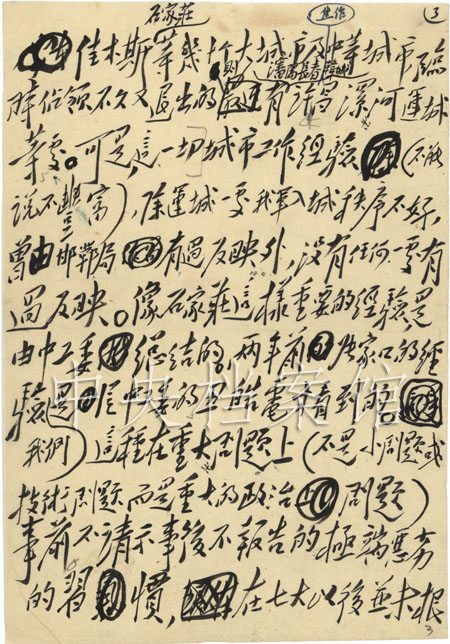 石家莊
焦作
3
佳木斯等幾個大城市及中等城市臨
則
瀋陽長春
時佔領不久又退出的還有漯河運城
等處。可是,這一切城市工作經驗(不能
說不豐富),除運城一處我軍入城秩序不好,
曾由邯鄲局有過反映外,沒有任何一處有
過反映。像石家莊這樣重要的經驗是
由中工委總結的,兩年前張家口的經
驗是
我們)這種在重大問題上(不是小問題或
技術問題而是重大的政治問題)
事前不請示事後不報告的極端惡劣
的習慣,在七大以後並未根
中央档案馆
3